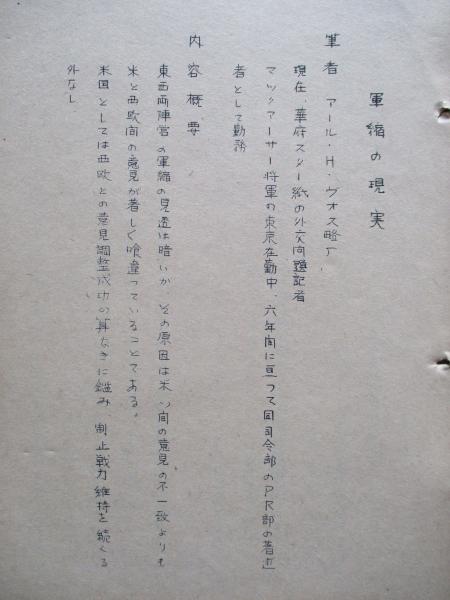 軍縮の現実
筆者 アール・H・ヴオス略歴
現在、華府スター紙の外交问題記者
マックアーサー将軍の東京在勤中、六年间に亘つて同司令部のPR部の著述
者として勤務
内容概要
東西両陣営の軍縮の見透は暗いが、その原因は米ソ间の意見の不一致よりも
米と西欧间の意見が著しく喰違っていることである。
米国としては西欧との意見調整成功の算なきに鑑み 制止戦力維持を続くる
外なし